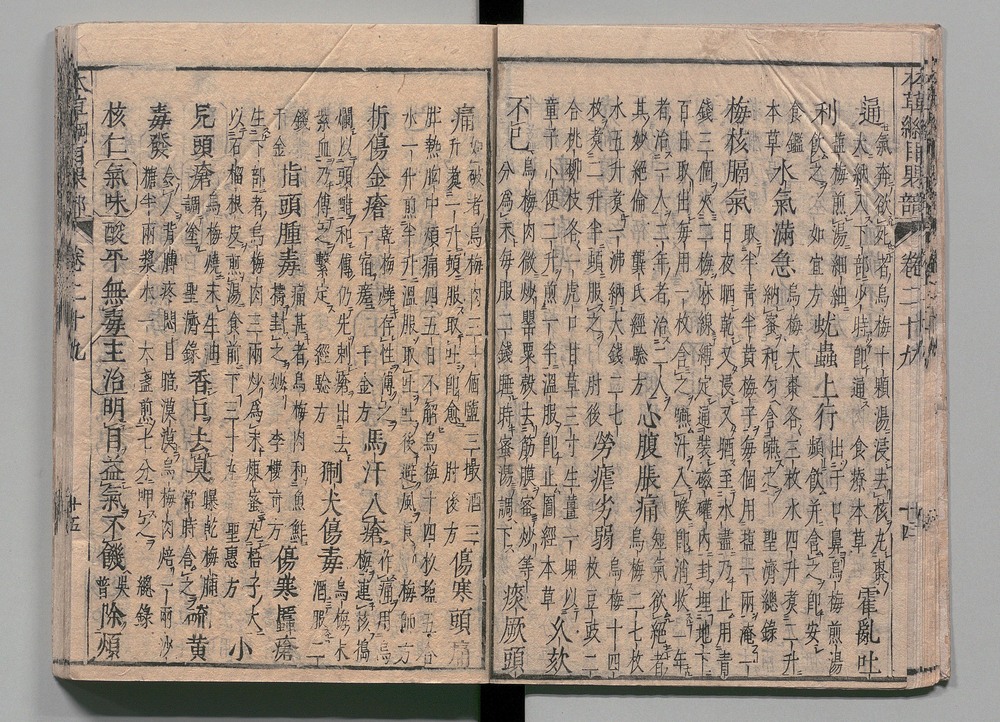 本草綱目果部 卷二十九 十四
通 氣奔欲死者烏梅十顆湯浸去核丸棗大綿納入下部少時即通 食療本草 霍亂吐
利 鹽梅煎湯細細飲之 如宜方 蚘蟲上行 出于口鼻烏梅煎湯頻飲并含之即安
食鑑本草 水氣滿急 烏梅大棗各三枚水四升煮二升納蜜和勻含嚥之 聖濟總錄
梅核膈氣 取半青半黃梅子每個用鹽一兩淹一日夜晒乾又浸又晒至水盡乃止用青
錢三個夾二梅麻線縛定通裝磁罐內封埋地下百日取出每用一枚含之嚥汁入喉即消收一年
者治一人二年者治二人其妙絕倫 龔氏經驗方 心腹脹痛 短氣欲絕者烏梅二七枚
水五升煮一沸納大錢二七枚煮二升半頓服之 肘後 勞瘧劣弱 烏梅十四枚豆豉二
合桃柳枝各一虎口甘草三寸生薑一塊以童子小便二升煎一半溫服即止 圖經本草 久欬
不已 烏梅肉微炒罌粟殼去筋膜蜜炒等分為末每服二錢睡時蜜湯調下 痰厥頭
痛 如破者烏梅肉三十個鹽三撮酒三升煮一升頓服取吐即愈 肘後方 傷寒頭痛
壯熱胸中煩痛四五日不解烏梅十四枚鹽五合水一升煎半升溫服取吐吐後避風良 梅師方
折傷金瘡 乾梅燒存性傅之一宿瘥 千金方 馬汗入瘡 作痛用烏梅連核搗
爛以頭醋和傅仍先刺瘡出去紫血乃傅之繫定 經驗方 猘犬傷毒 烏梅末酒服二
錢 千金 指頭腫毒 痛甚者烏梅肉和魚鮓搗封之妙 李樓奇方 傷寒䘌瘡
生下部者烏梅肉三兩炒為末煉蜜丸梧子大以石榴根皮煎湯食前下三十丸 聖惠方 小
兒頭瘡 烏梅燒末生油調塗 聖濟錄 香口去臭 曝乾梅脯常時含之 硫黃
毒發 令人背膊疼悶目暗漠漠烏梅肉焙一兩沙糖半兩漿水一大盞煎七分呷之 總錄
核仁 氣味 酸平無毒 主治 明目益氣不饑 吳普 除煩
本草綱目果部 卷二十九 十五